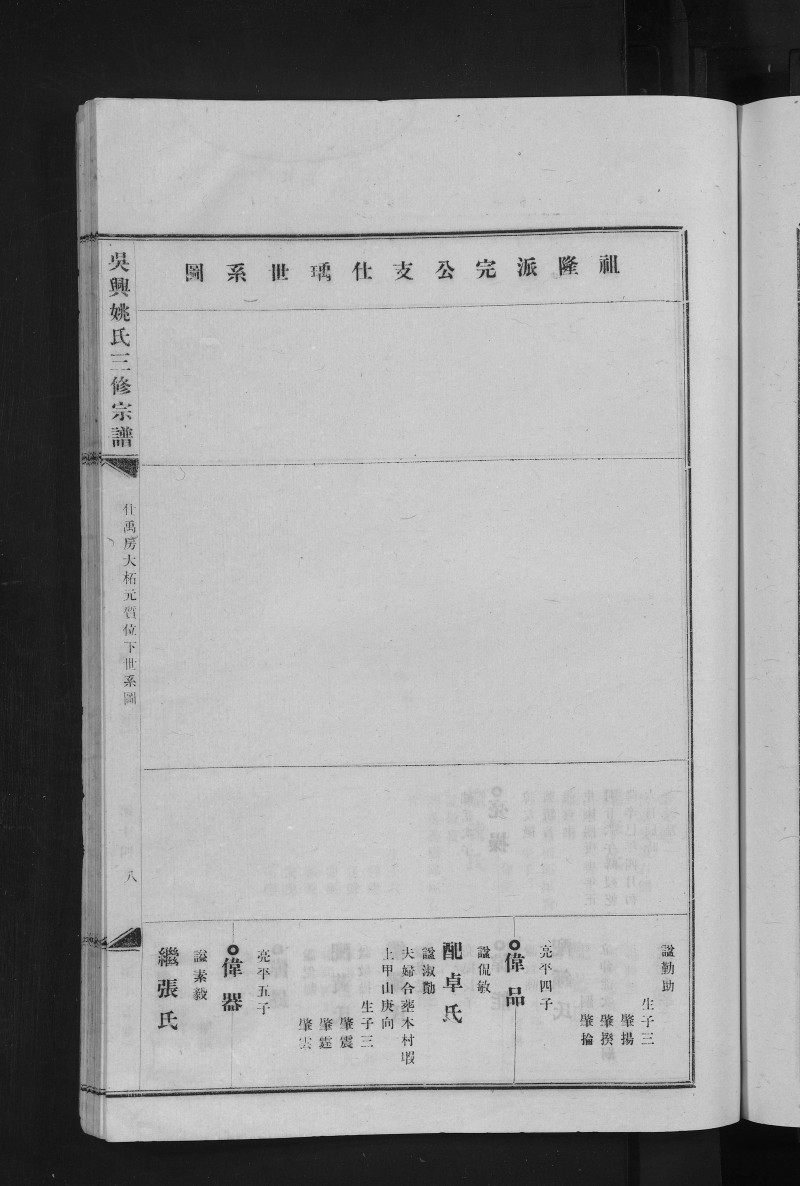 祖隆派完公支仕瑀世系圖
諡勤助
生子三
肇揚
肇揆
肇掄
亮平四子
偉品
諡侃敏
配卓氏
諡淑勷
夫婦合塟本村塅
上甲山庚向
生子三
肇震
肇霆
肇雲
亮平五子
偉器
諡素毅
繼張氏
吳興姚氏三修宗譜
仕禹房大柘元質位下世系圖
八